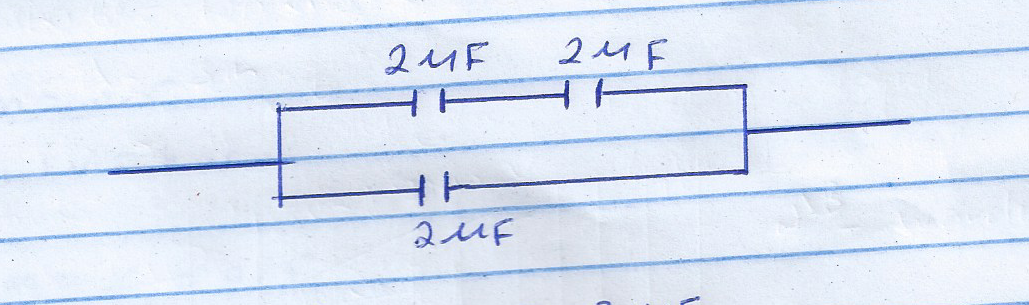 2µF 2µF
2µF